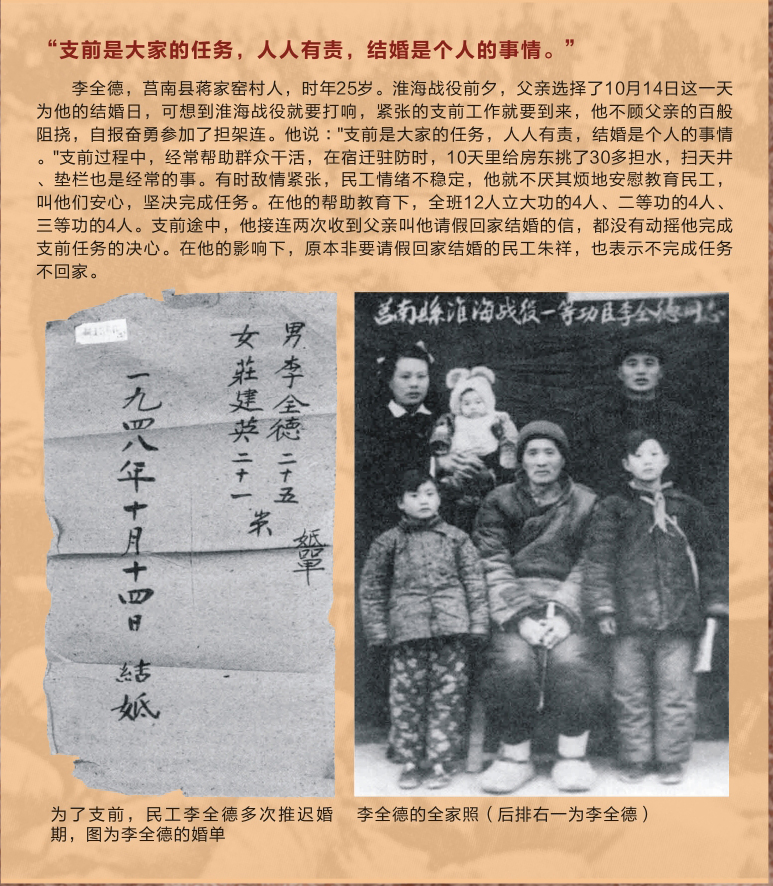 “支前是大家的任务，人人有责，结婚是个人的事情。”
李全德，莒南县蒋家窑村人，时年25岁。淮海战役前夕，父亲选择了10月14日这一天
为他的结婚日，可想到淮海战役就要打响，紧张的支前工作就要到来，他不顾父亲的百般
阻挠，自报奋勇参加了担架连。他说："支前是大家的任务，人人有责，结婚是个人的事情
。"支前过程中，经常帮助群众干活，在宿迁驻防时，10天里给房东挑了30多担水，扫天井
、垫栏也是经常的事。有时敌情紧张，民工情绪不稳定，他就不厌其烦地安慰教育民工，
叫他们安心，坚决完成任务。在他的帮助教育下，全班12人立大功的4人、二等功的4人、
三等功的4人。支前途中，他接连两次收到父亲叫他请假回家结婚的信，都没有动摇他完成
支前任务的决心。在他的影响下，原本非要请假回家结婚的民工朱祥，也表示不完成任务
不回家。
婚單
男 李全德 二十五
女 莊建英 二十一
一九四八年十月十四日 結婚
莒南縣淮海战役一等功臣李全德同志
为了支前，民工李全德多次推迟婚
期，图为李全德的婚单
李全德的全家照（后排右一为李全德）